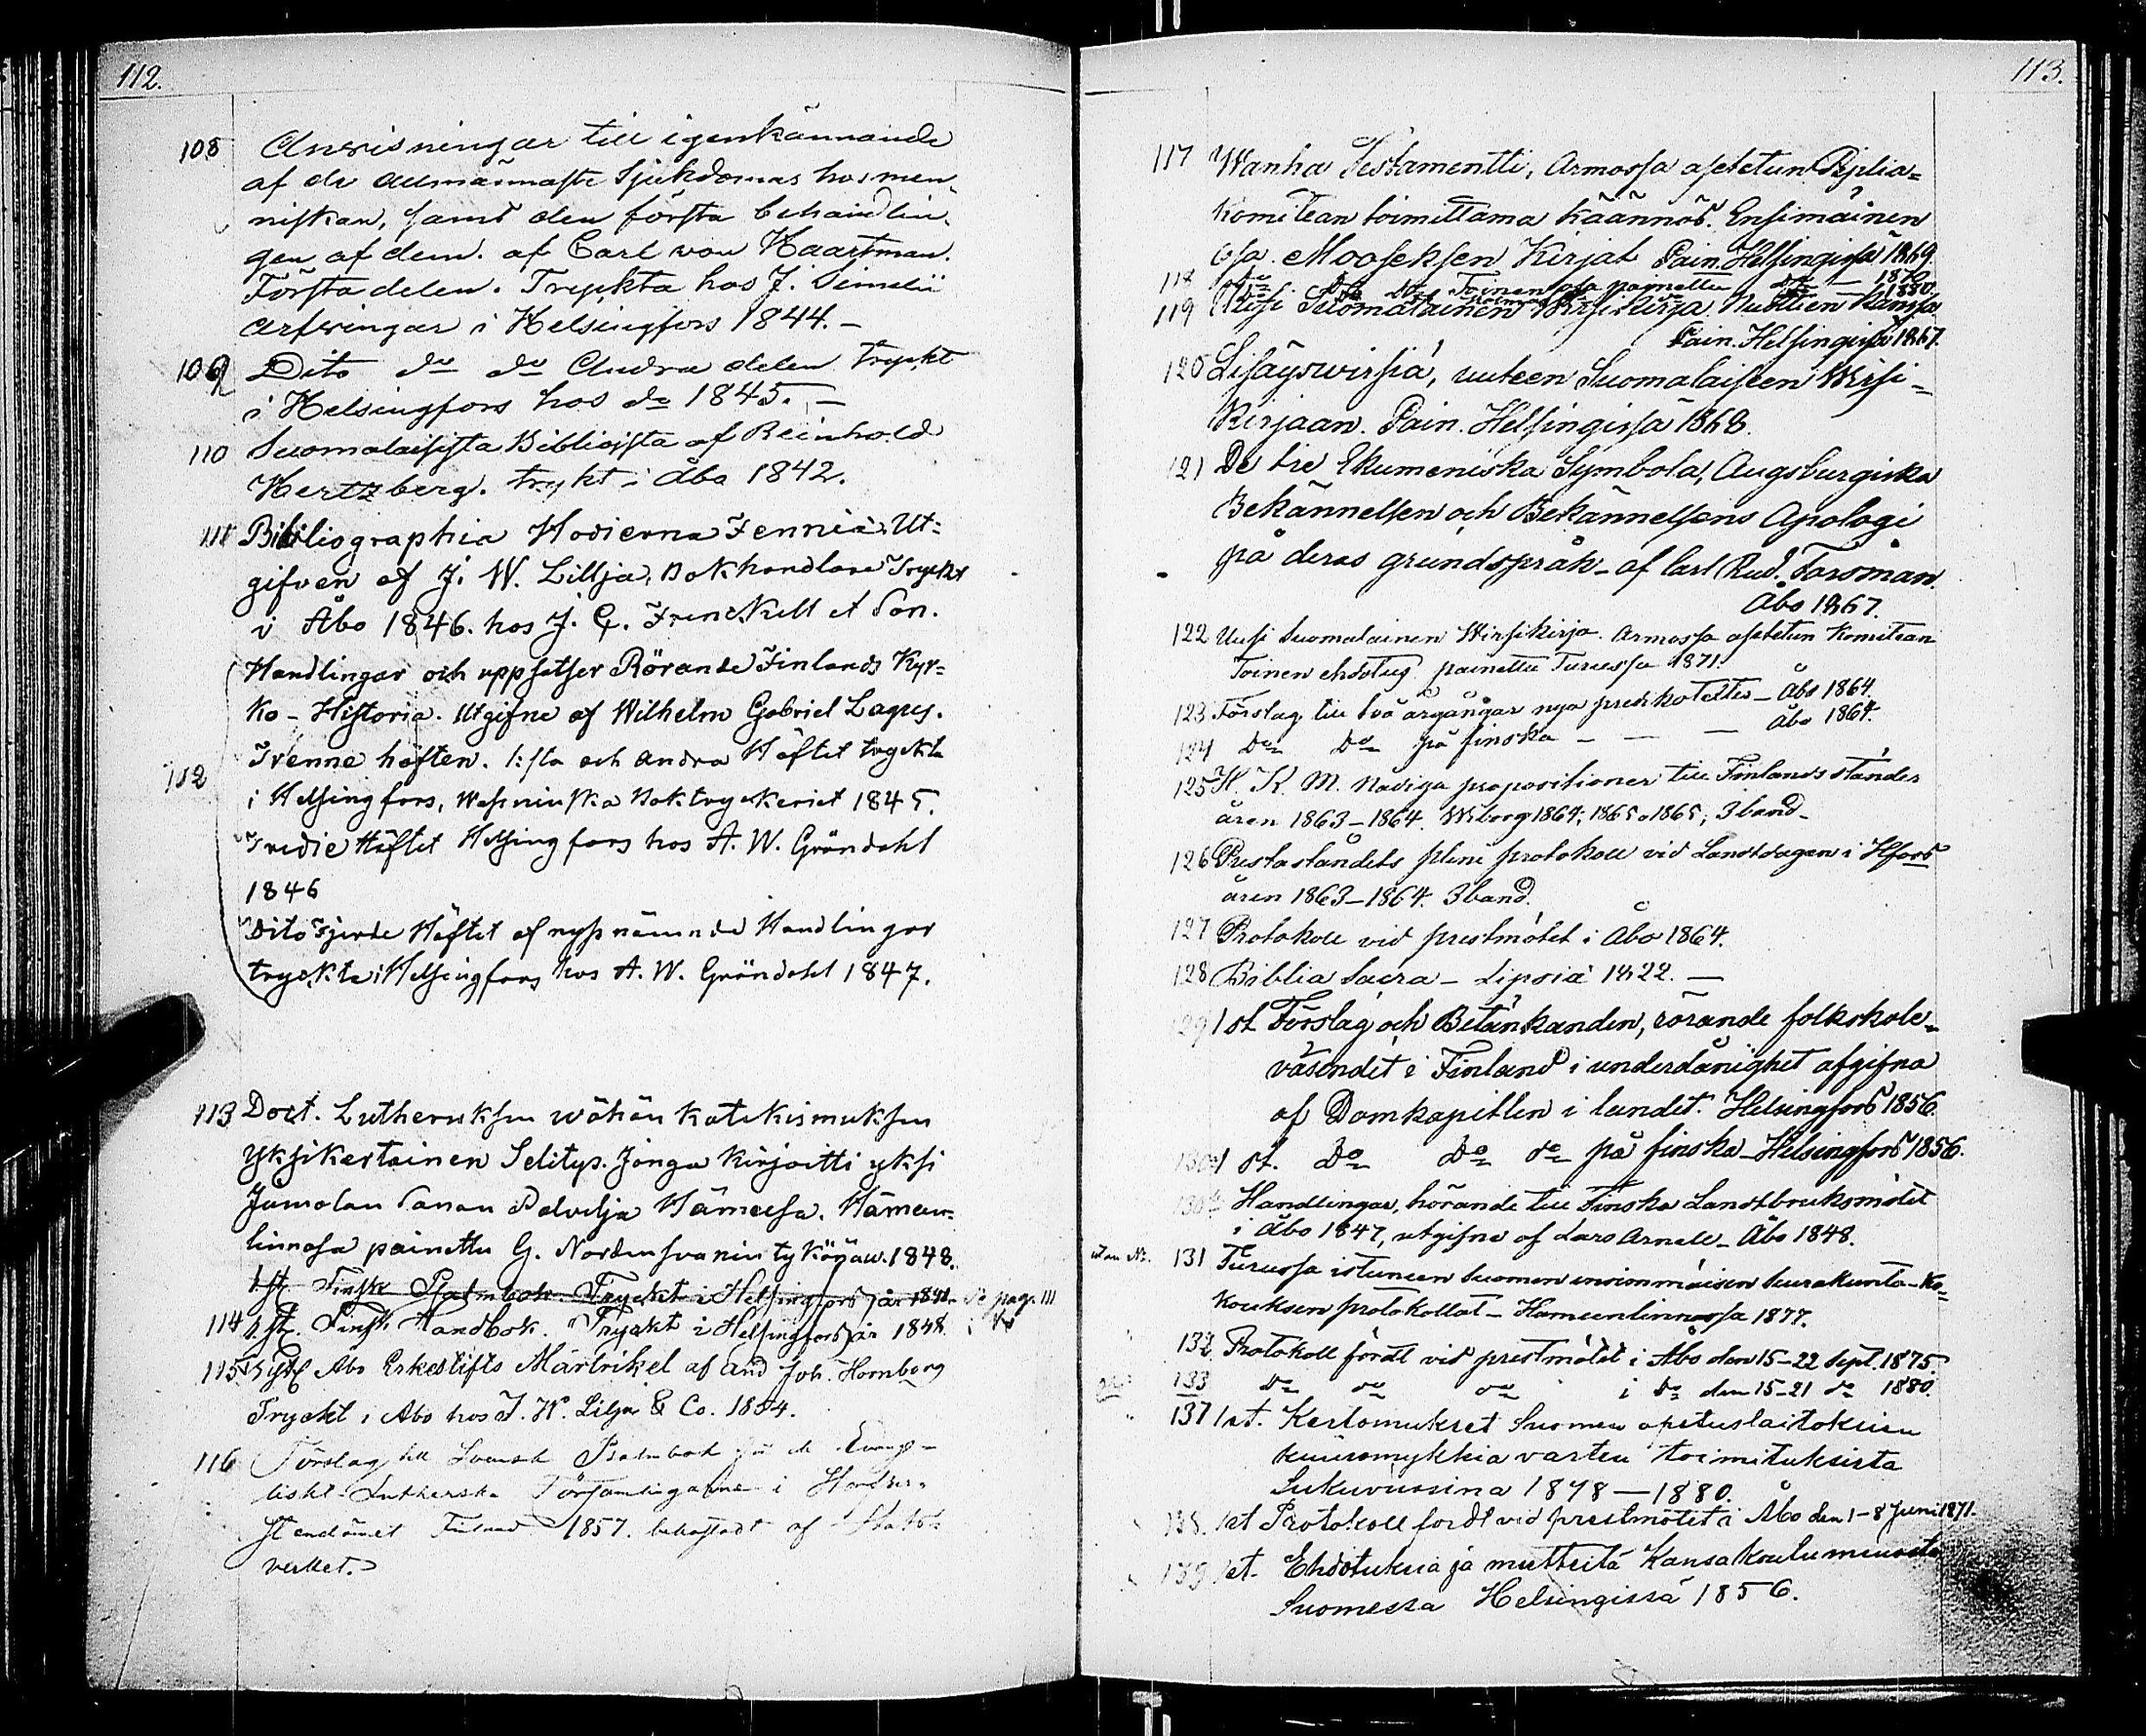 112.
108 Anvisningar till igenkännande
af de allmännaste Sjukdomar hos men-
niskan, samt den första behandlin-
gen af dem. af Carl von Haartman.
Första delen. Tryckta hos J. Simelii
arfvingar i Helsingfors 1844. –
109 Dito do do Andra delen tryckt
i Helsingfors hos do 1845. –
110 Suomalaisista Biblioista af Reinhold
Hertzberg. trykt i Åbo 1842.
111 Bibliographia Hodierna Fennia, Ut-
gifven af J. W. Lillja, Bokhandlare Tryckt
i Åbo 1846. hos J. C. Frenckell et Son.
Handlingar och uppsatser Rörande Finlands Kyr-
ko-Historia. Utgifne af Wilhelm Gabriel Lagus.
Trenne häften. 1:sta och andra Häftet tryckta
112 i Helsingfors, Waseniuska Boktryckeriet 1845.
Tredie Häftet Helsingfors hos A. W. Gröndahl
1846
Dito Fjerde Häftet af nyssnämnde Handlingar
tryckta i Helsingfors hos A. W. Gröndahl 1847.
113 Doct. Lutheruksen wähän katekismuksen
Yksikertainen Selitys. Jonga kirjoitti yksi
Jumalan Sanan Palvelja Hämeesa. Hämeen-
linnasa painettu G. Nordensvanin tykönäw. 1848.
1 st. Finsk Psalmbok. Tryckt i Helsingfors år 1841. Se pag. 111
114 1 st. Finsk Handbok. Tryckt i Helsingfors år 1848.
115 1 st Åbo Erkestifts Martrikel af And Joh. Hornborg
Tryckt i Åbo hos J. W. Lilja & Co. 1854.
116 Förslag till Svensk Psalmbok för de Evange-
liskt-Lutherska Församlingarne i Storfur-
stendömet Finland 1857. bekostadt af Stats-
verket.
113.
117 Wanha Testamentti, Armossa asetetun Biplia-
Komitean toimittama käännös. Ensimäinen
Osa. Mooseksen Kirjat Pain. Helsingissä 1869.
118 Do Do Toinen osa painettu do – 1870
kolmas 1880.
119 Uusi Suomalainen Wirsikirja. Nuottien Kanssa
Pain. Helsingissä 1867.
120 Lisäyswirsiä, uuteen Suomalaiseen Wirsi-
Kirjaan. Pain. Helsingissä 1868.
121 De tre Ekumeniska Symbola, Augsburgiska
Bekännelsen och Bekännelsens Apologi
på deras grundspråk – af Carl Rud. Forsman.
Åbo 1867.
122 Uusi Suomalainen Wirsikirja. Armossa asetetun Komitean
Toinen ehdotus painettu Turussa 1871.
123 Förslag till två årgångar nya predikotexter – Åbo 1864.
124 Do Do på finska – – – Åbo 1864.
125 H. K. M. Nådiga propositioner till Finlands ständer
åren 1863–1864. Wiborg 1864; 1865 o 1865; 3 band.
126 Presteståndets pleni protokoll vid Landtdagen i Hfors
åren 1863–1864. 3 band.
127 Protokoll vid prestmötet i Åbo 1864.
128 Biblia Sacra – Lipsiä 1822. –
129 1 st Förslag och Betänkanden, rörande folkskole-
väsendet i Finland i underdånighet afgifna
af Domkapitlen i landet. Helsingfors 1856.
130 1 st. Do Do do på finska – Helsingfors 1856.
130 Handlingar, hörande till Finska Landtbruksmötet
i Åbo 1847, utgifne af Lars Arnell – Åbo 1848.
utan No. 131 Turussa istuneen Suomen ensimmäisen Seurakunta-Ko-
kouksen protokollat – Hämeenlinnassa 1877.
132 Protokoll fördt vid prestmötet i Åbo den 15–22 Sept. 1875
133 Do do do i Do den 15–21 do 1880.
137 1 st. Kertomukset Suomen opetuslaitoksien
kuuromykkiä varten toimituksista
Lukuvuosina 1878–1880.
138. 1 st Protokoll fördt vid prestmötet i Åbo den 1–8 Juni 1871.
139 1 st. Ehdotuksia ja mietteitä Kansakoulumuodosta
Suomessa Helsingissä 1856.